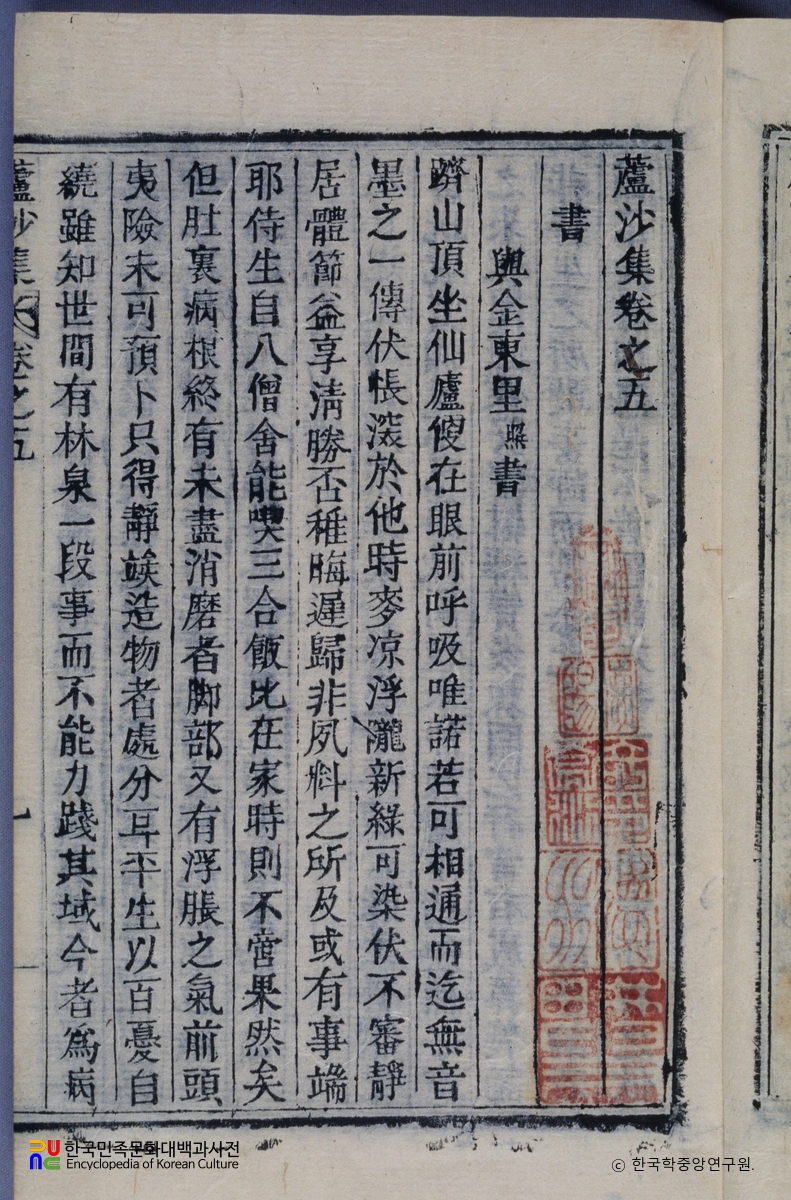 蘆沙集卷之五
書
與金東里 照 書
躋山頂坐仙廬傁在眼前呼吸唯諾若可相通而迄無音
墨之一傳伏悵深於他時麥凉浮隴新綠可染伏不審靜
居體節益享淸勝否稚晦遲歸非夙料之所及或有事端
耶侍生自入僧舍能喫三合飯比在家時則不啻果然矣
但肚裏病根終有未盡消磨者脚部又有浮脹之氣前頭
夷險未可預卜只得靜竢造物者處分耳平生以百憂自
繞雖知世間有林泉一段事而不能力踐其域今者爲病
蘆沙集 卷之五 一
한국민족문화대백과사전
Encyclopedia of Korean Culture
ⓒ 한국학중앙연구원.